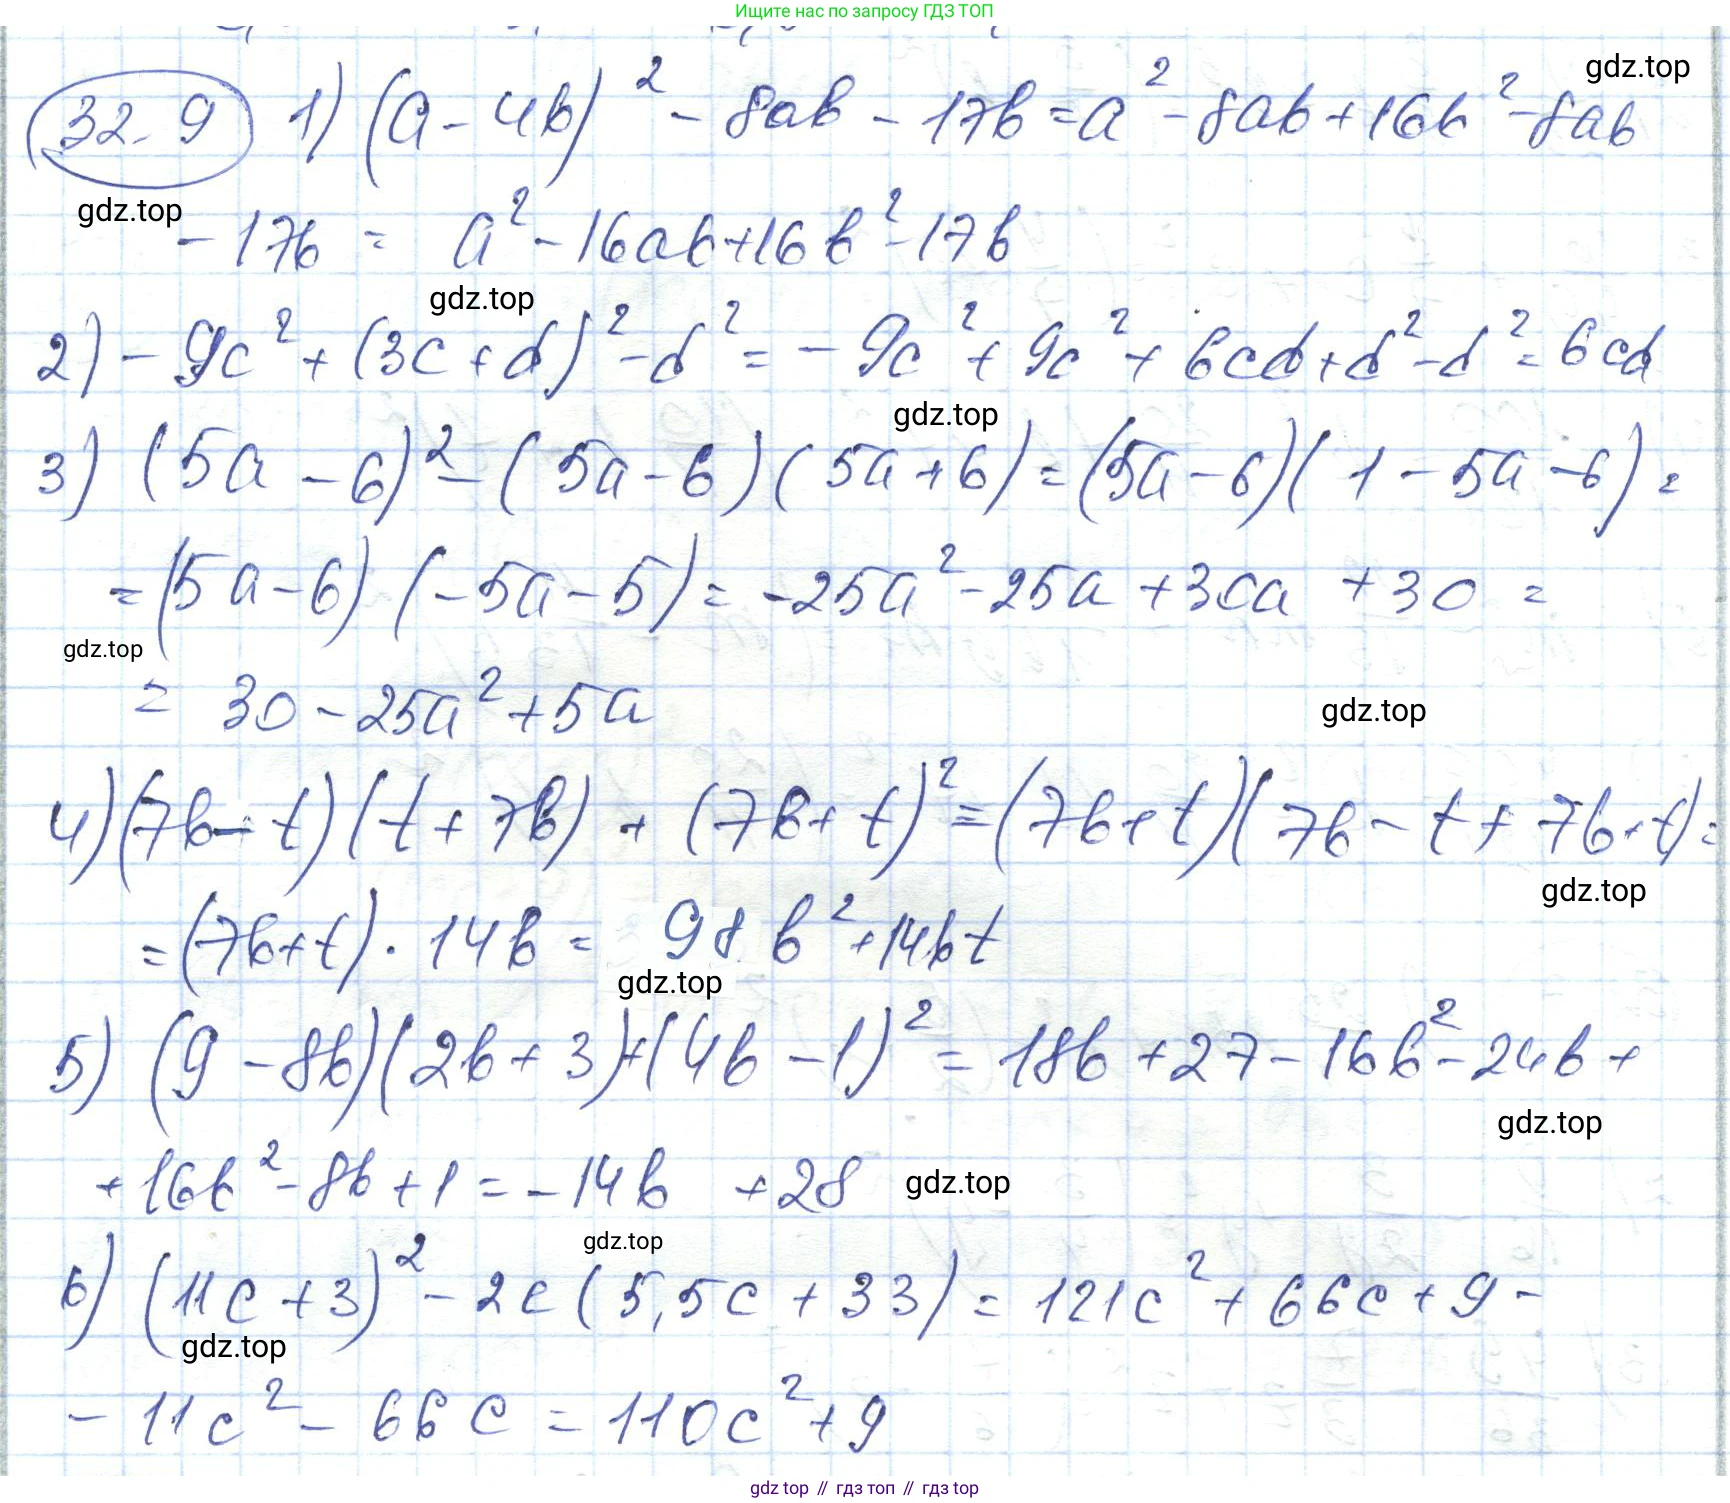 Ищите нас по запросу ГДЗ ТОП
gdz.top
32.9 1) (a - 4b)² - 8ab - 17b = a² - 8ab + 16b² - 8ab
gdz.top
- 17b = a² - 16ab + 16b² - 17b
gdz.top
2) - 9c² + (3c + d)² - d² = - 9c² + 9c² + 6cd + d² - d² = 6cd
gdz.top
3) (5a - 6)² - (5a - 6)(5a + 6) = (5a - 6)(1 - 5a - 6) =
= (5a - 6)·(-5a - 5) = -25a² - 25a + 30a + 30 =
gdz.top
= 30 - 25a² + 5a
gdz.top
4) (7b - t)(t + 7b) + (7b + t)² = (7b + t)(7b - t + 7b + t) =
gdz.top
= (7b + t)·14b = 98b² + 14bt
gdz.top
5) (9 - 8b)(2b + 3) + (4b - 1)² = 18b + 27 - 16b² - 24b +
gdz.top
+ 16b² - 8b + 1 = - 14b + 28
gdz.top
gdz.top
6) (11c + 3)² - 2c (5,5c + 33) = 121c² + 66c + 9 -
gdz.top
- 11c² - 66c = 110c² + 9
gdz top // гдз топ // gdz top